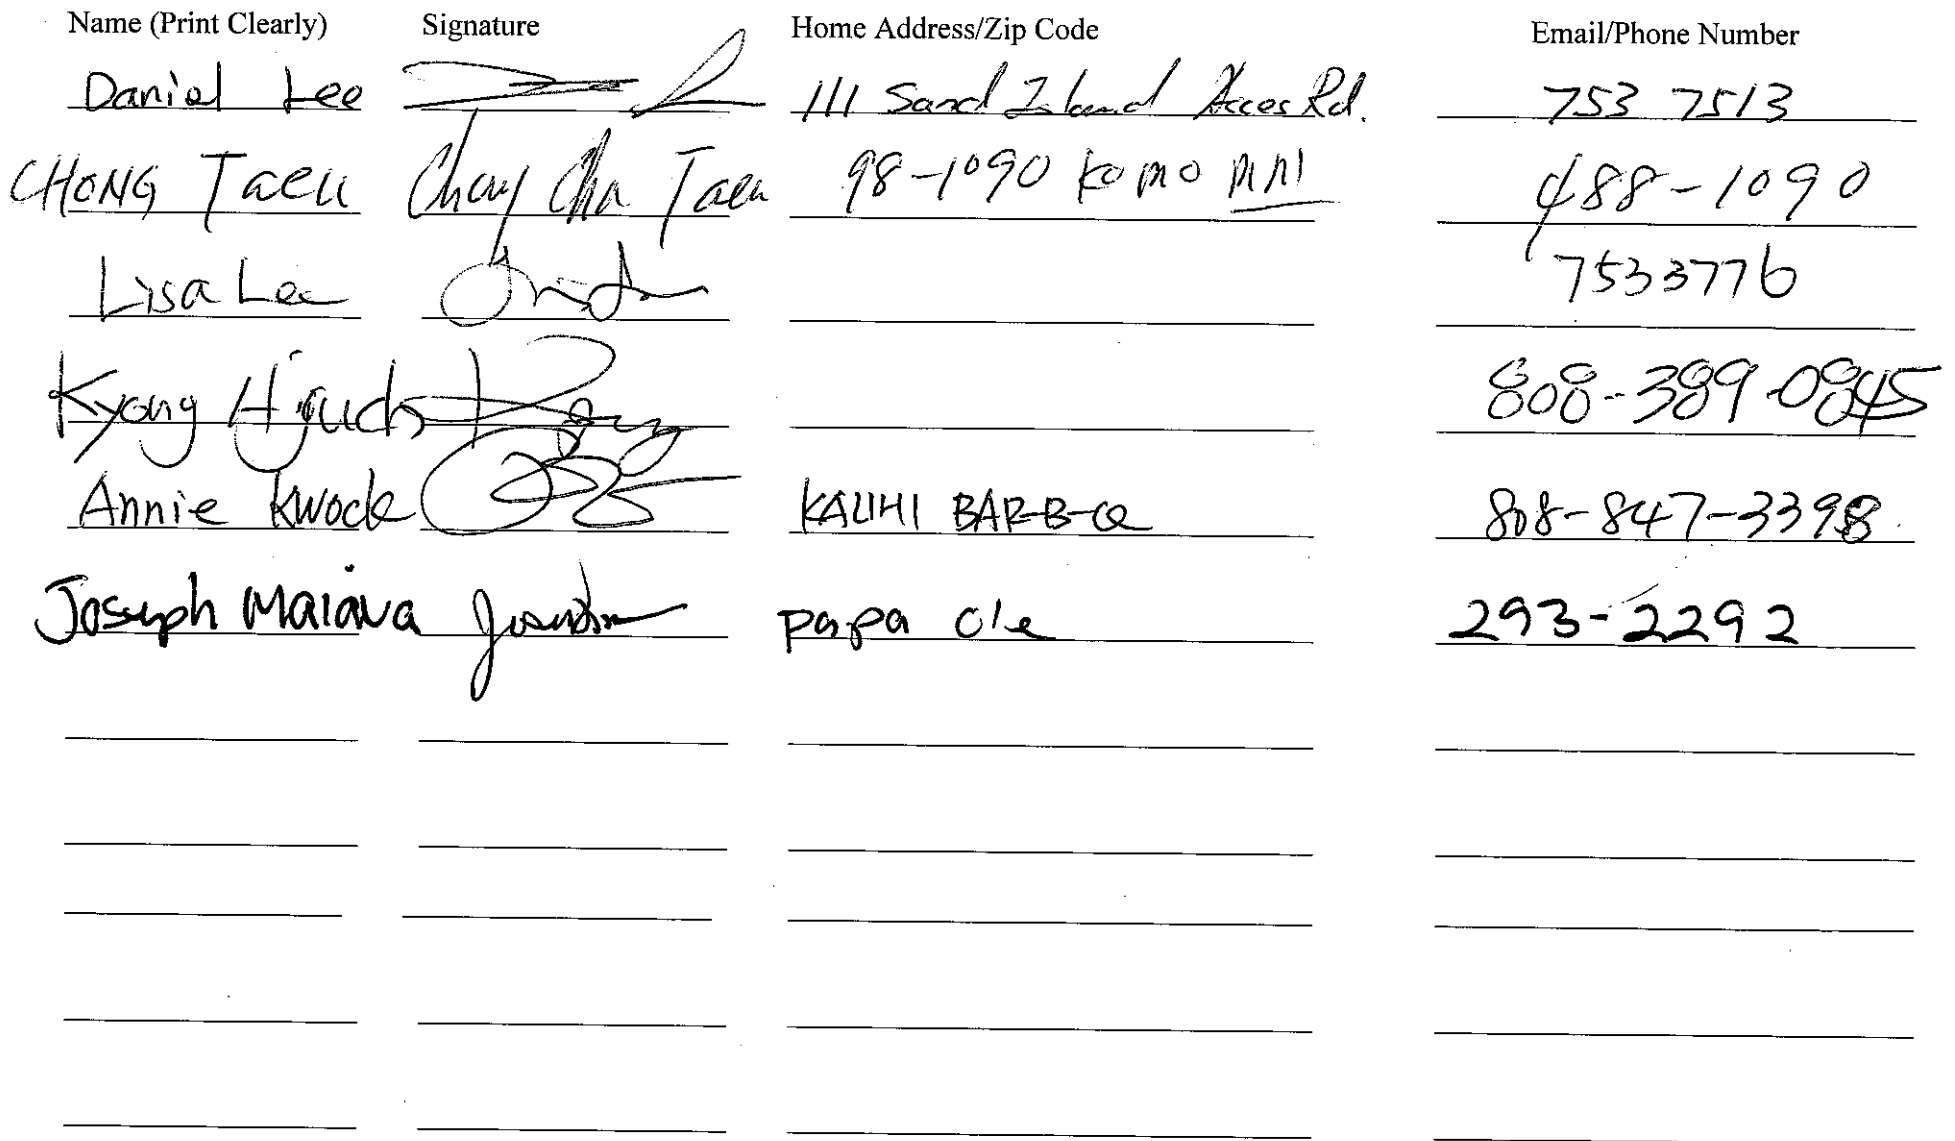 Name (Print Clearly) Signature Home Address/Zip Code Email/Phone Number
Daniel Lee 111 Sand Island Acces Rd. 753 7513
CHONG Taeu Chong Cha Taeu 98-1090 Komo MAI 488-1090
Lisa Lee 7533776
Kyong Higuchi 808-389-0845
Annie Kwock KALIHI BAR-B-Q 808-847-3398
Joseph Maiava papa ole 293-2292